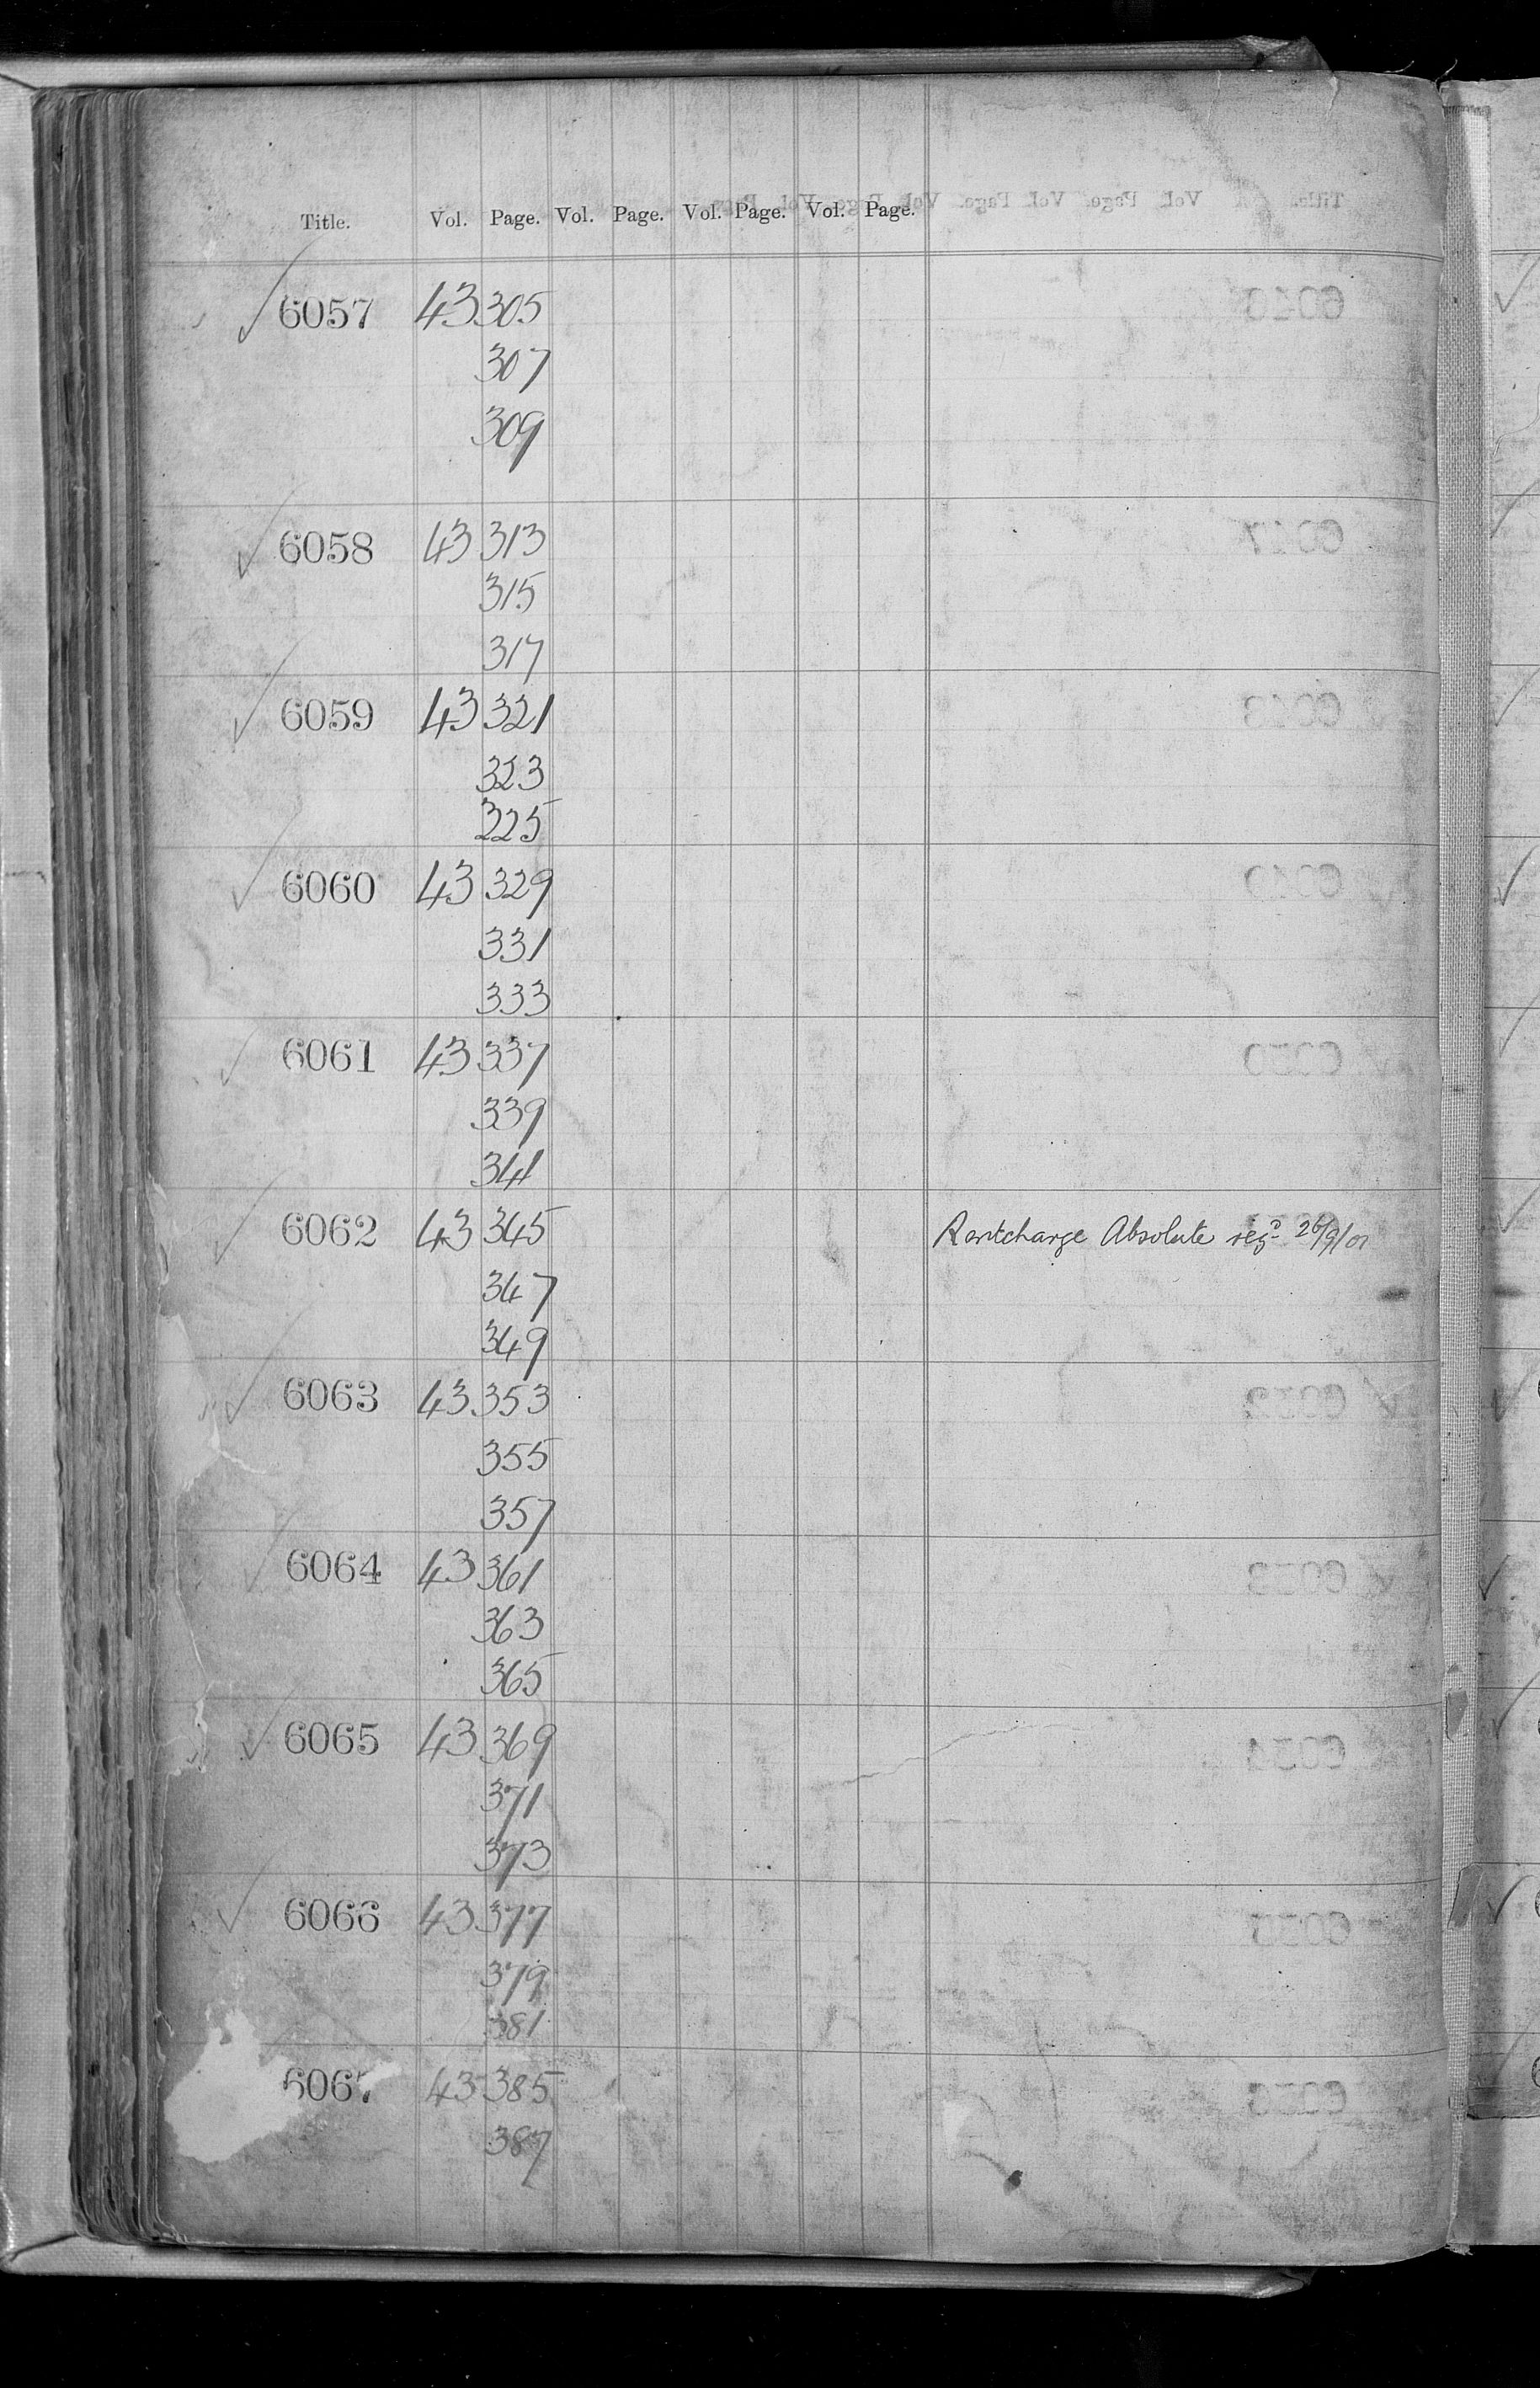 Title. Vol. Page. Vol. Page. Vol. Page. Vol. Page.
6057 43 305
307
309
6058 43 313
315
317
6059 43 321
323
325
6060 43 329
331
333
6061 43 337
339
341
6062 43 345 Rentcharge Absolute regd 26/9/01
347
349
6063 43 353
355
357
6064 43 361
363
365
6065 43 369
371
373
6066 43 377
379
381
6067 43 385
387